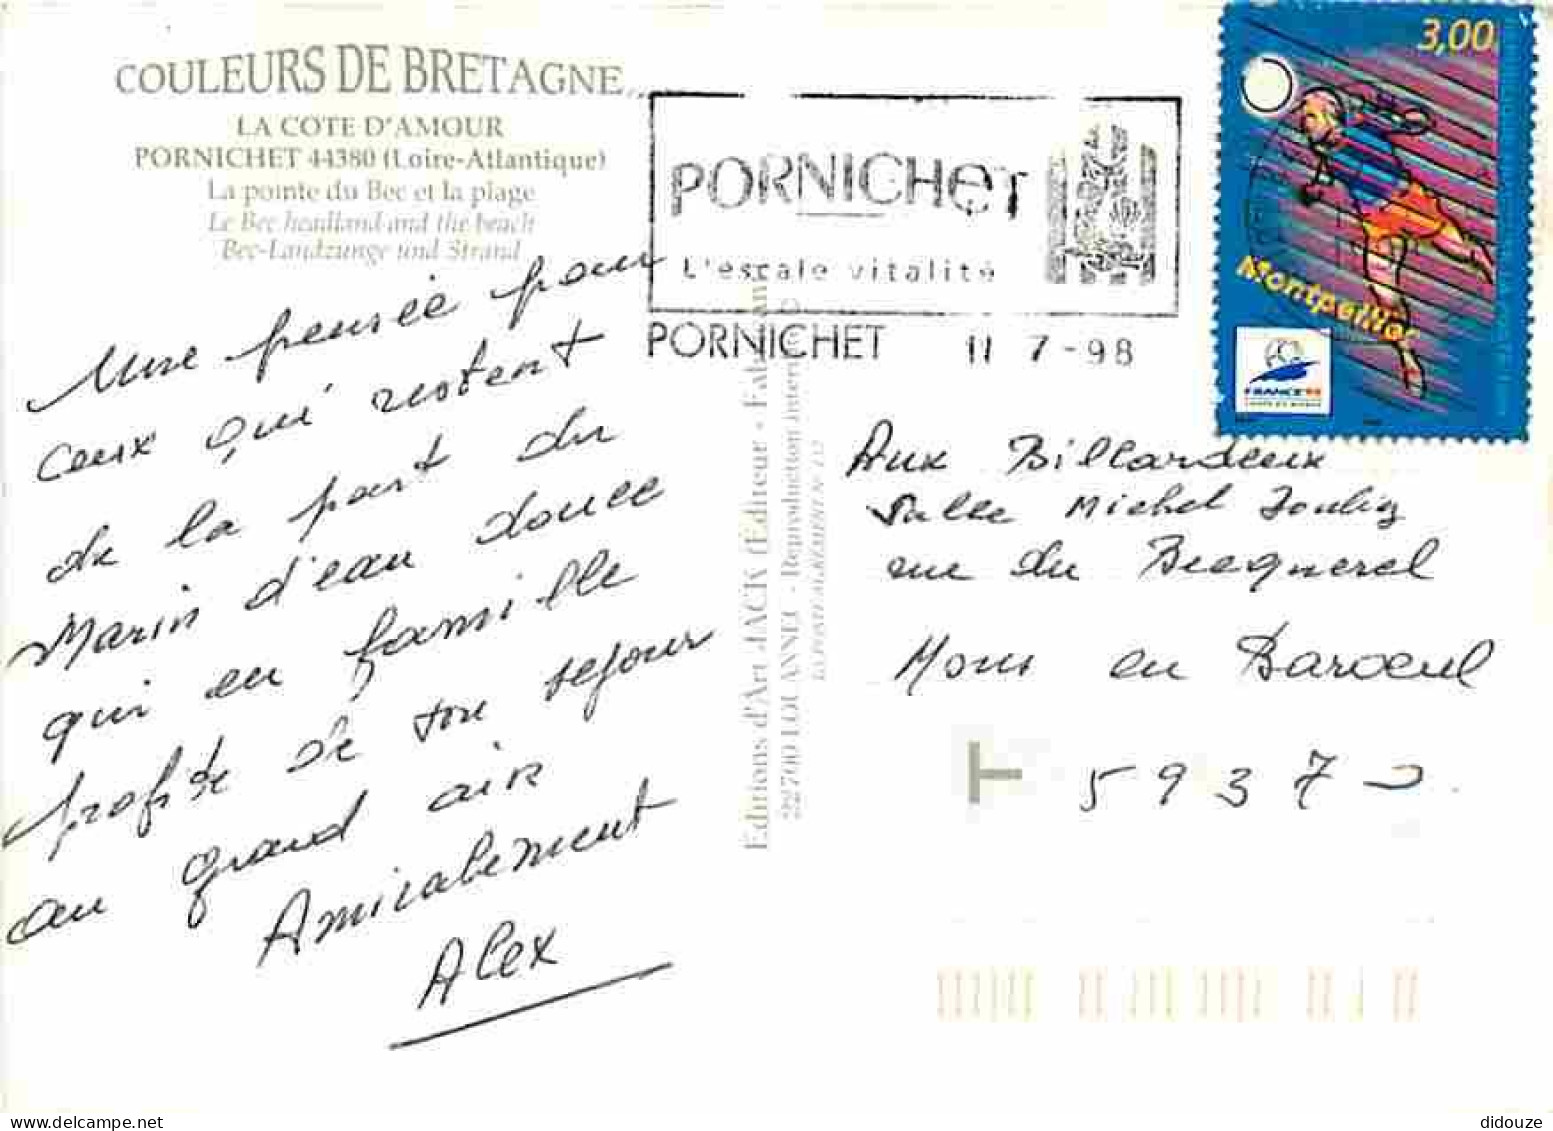 COULEURS DE BRETAGNE...
LA COTE D'AMOUR
PORNICHET 44380 (Loire-Atlantique)
La pointe du Bec et la plage
Le Bec headland and the beach
Bec-Landzunge und Strand
Une pensée pour
ceux qui restent
de la part du
Marin d'eau douce
qui en famille
profite de son sejour
au grand air
Amicalement
Alex
Éditions d'Art JACK (Éditeur - Fabricant)
22700 LOUANNEC - Reproduction
PORNICHET
L'escale vitalité
PORNICHET 11 7-98
3,00
Montpellier
FRANCE 98
Aux Billardeux
Salle Michel
rue du Becquerel
Mons en Baroeul
T 59370
didouze